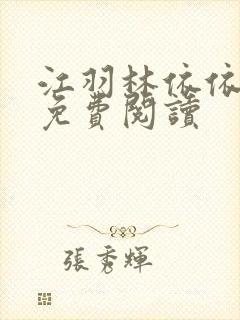 江羽林依依
免費閱讀
張秀輝